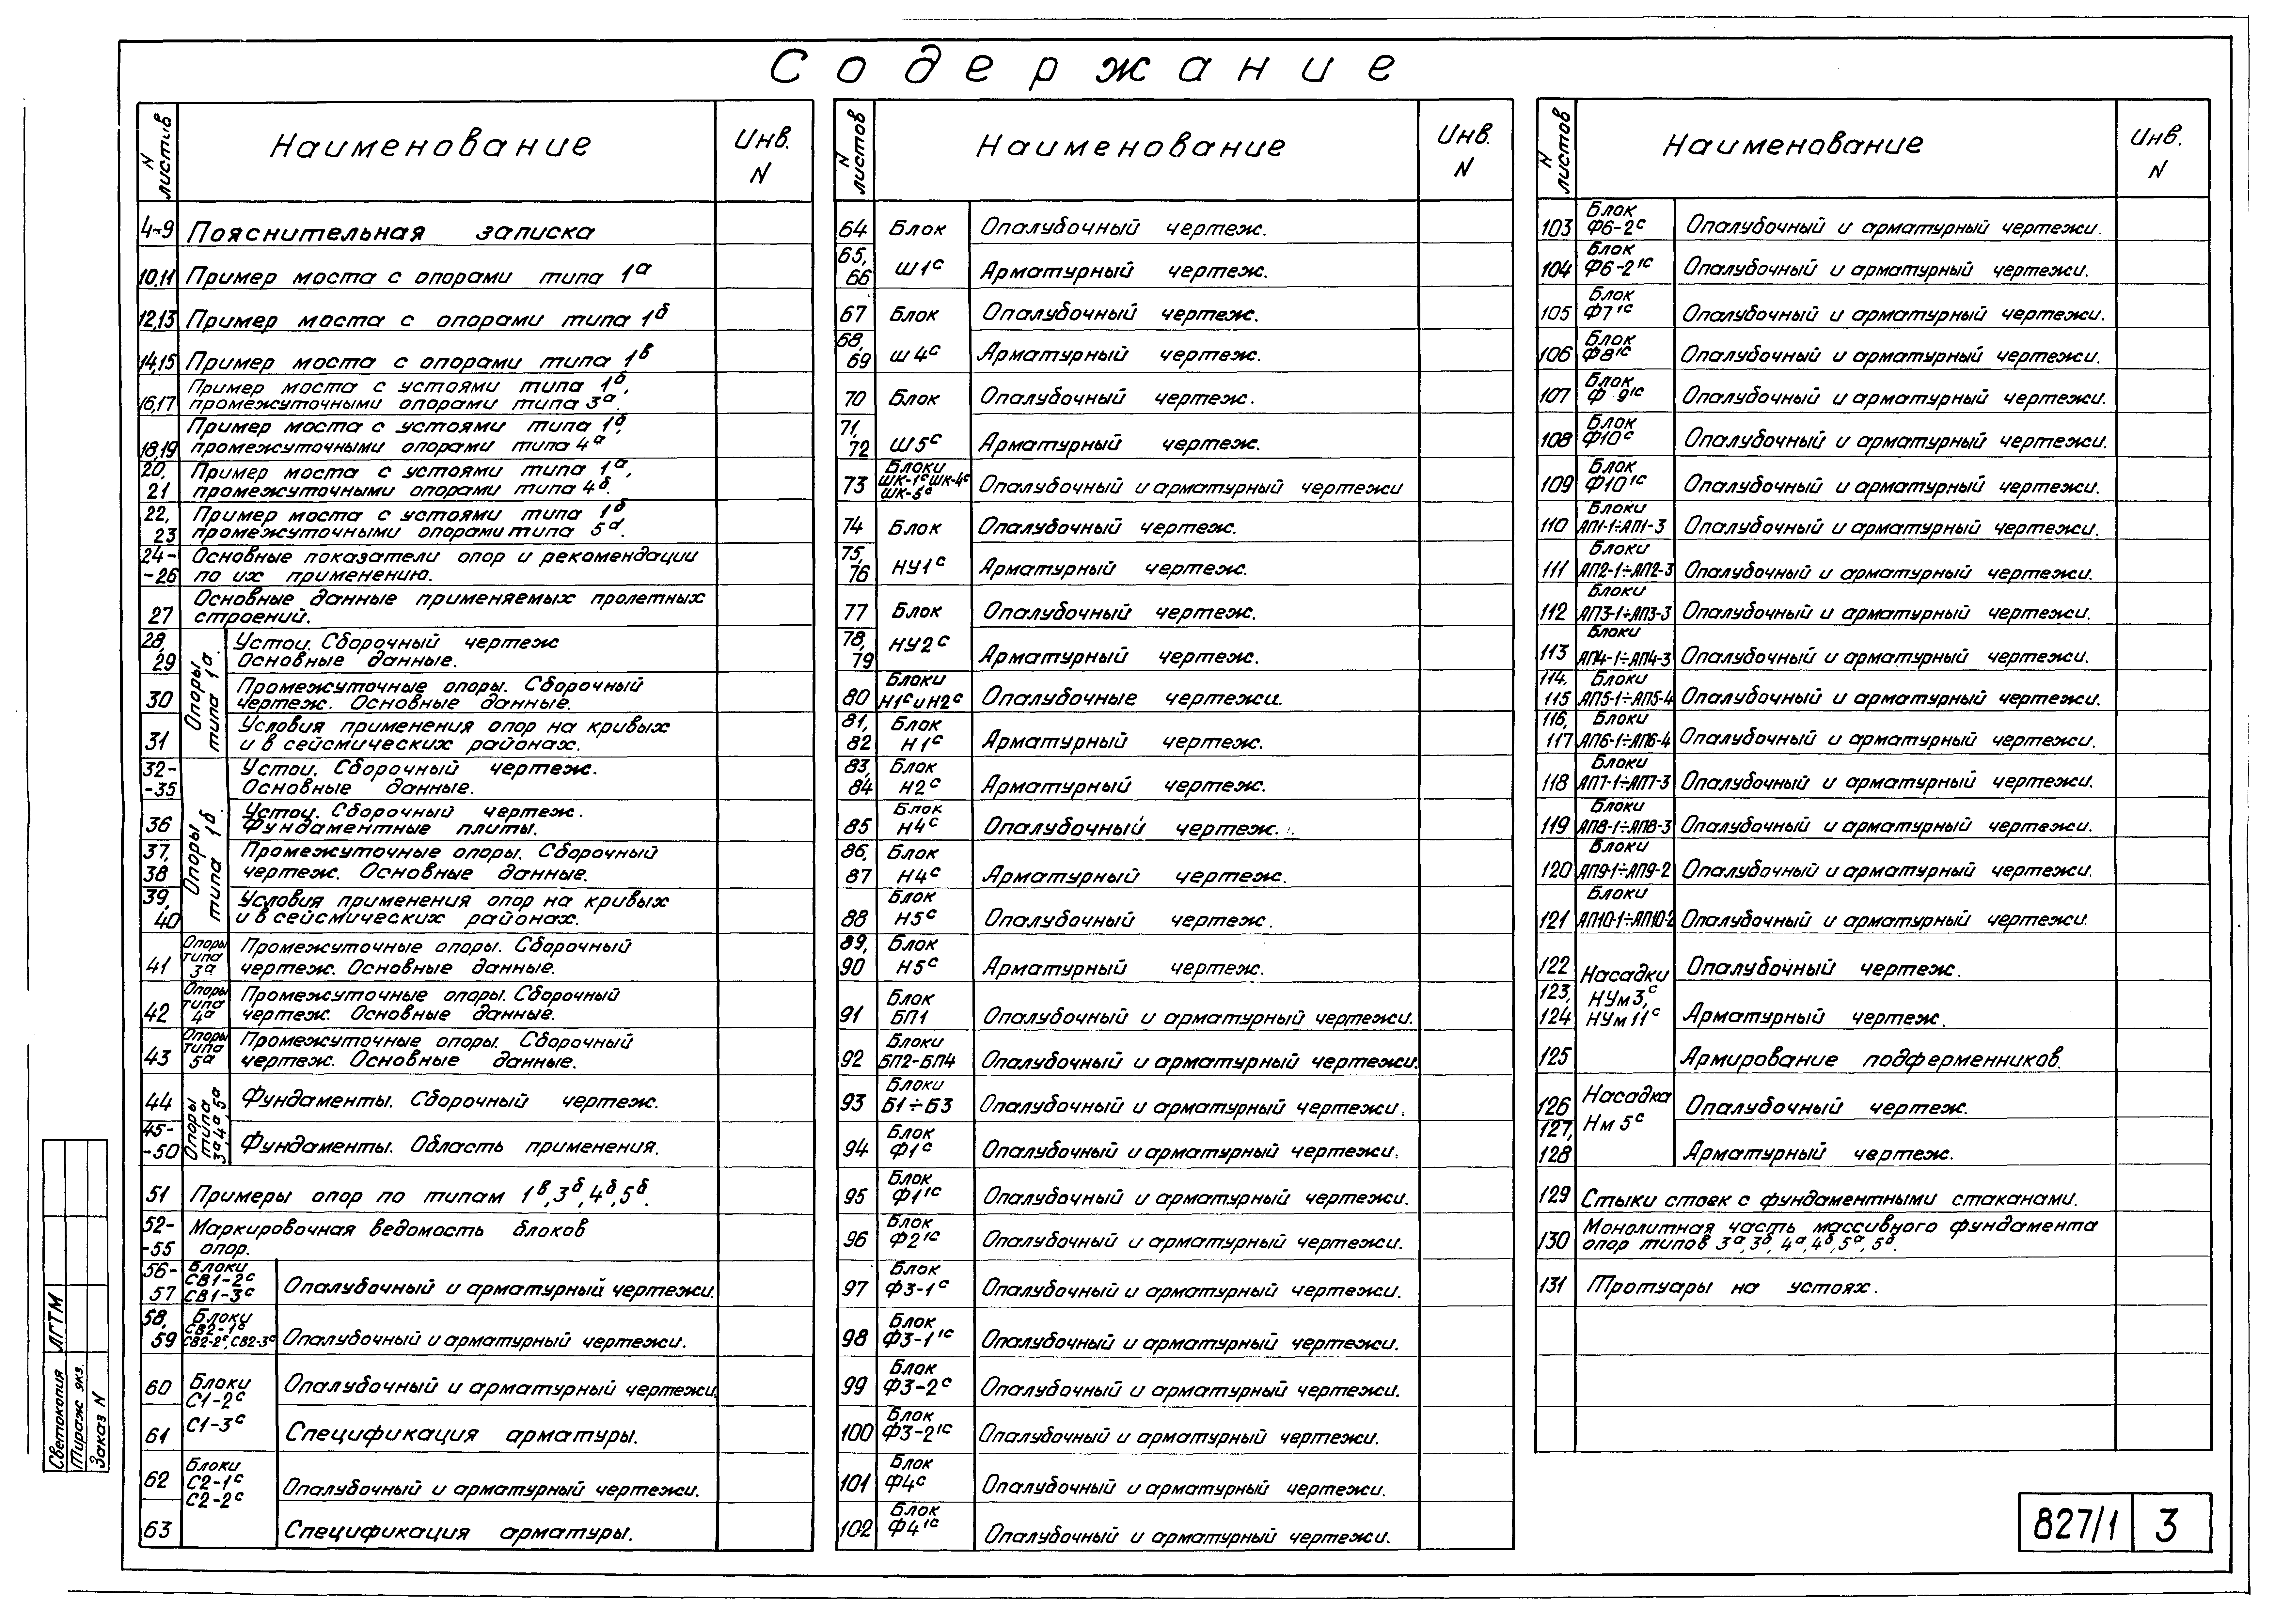 Содержание
N листов
Наименование
Инв. N
4-9 Пояснительная записка
10,11 Пример моста с опорами типа 1а
12,13 Пример моста с опорами типа 1б
14,15 Пример моста с опорами типа 1в
16,17 Пример моста с устоями типа 1б,
промежуточными опорами типа 3а.
18,19 Пример моста с устоями типа 1б,
промежуточными опорами типа 4а
20, 21 Пример моста с устоями типа 1а,
промежуточными опорами типа 4б.
22, 23 Пример моста с устоями типа 1б
промежуточными опорами типа 5а.
24-
-26 Основные показатели опор и рекомендации
по их применению.
27 Основные данные применяемых пролетных
строений.
Опоры типа 1а.
28, 29 Устои. Сборочный чертеж
Основные данные.
30 Промежуточные опоры. Сборочный
чертеж. Основные данные.
31 Условия применения опор на кривых
и в сейсмических районах.
Опоры типа 1б.
32-
-35 Устои. Сборочный чертеж.
Основные данные.
36 Устои. Сборочный чертеж.
Фундаментные плиты.
37, 38 Промежуточные опоры. Сборочный
чертеж. Основные данные.
39, 40 Условия применения опор на кривых
и в сейсмических районах.
41 Опоры типа 3а Промежуточные опоры. Сборочный
чертеж. Основные данные.
42 Опоры типа 4а Промежуточные опоры. Сборочный
чертеж. Основные данные.
43 Опоры типа 5а Промежуточные опоры. Сборочный
чертеж. Основные данные.
Опоры типа 3а,4а,5а
44 Фундаменты. Сборочный чертеж.
45-
-50 Фундаменты. Область применения.
51 Примеры опор по типам 1в,3б,4б,5б.
52-
-55 Маркировочная ведомость блоков
опор.
56-
57 Блоки СВ1-2с СВ1-3с Опалубочный и арматурный чертежи.
58, 59 Блоки СВ2-1с СВ2-2с, СВ2-3с Опалубочный и арматурный чертежи.
60 Блоки С1-2с С1-3с Опалубочный и арматурный чертежи.
61 Спецификация арматуры.
62 Блоки С2-1с С2-2с Опалубочный и арматурный чертежи.
63 Спецификация арматуры.
N листов
Наименование
Инв. N
64 Блок Опалубочный чертеж.
65, 66 Ш1с Арматурный чертеж.
67 Блок Опалубочный чертеж.
68, 69 Ш4с Арматурный чертеж.
70 Блок Опалубочный чертеж.
71, 72 Ш5с Арматурный чертеж.
73 Блоки ШК-1с ШК-4с ШК-5с Опалубочный и арматурный чертежи
74 Блок Опалубочный чертеж.
75, 76 НУ1с Арматурный чертеж.
77 Блок Опалубочный чертеж.
78, 79 НУ2с Арматурный чертеж.
80 Блоки Н1с и Н2с Опалубочные чертежи.
81, 82 Блок Н1с Арматурный чертеж.
83, 84 Блок Н2с Арматурный чертеж.
85 Блок Н4с Опалубочный чертеж.
86, 87 Блок Н4с Арматурный чертеж.
88 Блок Н5с Опалубочный чертеж.
89, 90 Блок Н5с Арматурный чертеж.
91 Блок БП1 Опалубочный и арматурный чертежи.
92 Блоки БП2-БП4 Опалубочный и арматурный чертежи.
93 Блоки Б1÷Б3 Опалубочный и арматурный чертежи.
94 Блок Ф1с Опалубочный и арматурный чертежи.
95 Блок Ф11с Опалубочный и арматурный чертежи.
96 Блок Ф21с Опалубочный и арматурный чертежи.
97 Блок Ф3-1с Опалубочный и арматурный чертежи.
98 Блок Ф3-11с Опалубочный и арматурный чертежи.
99 Блок Ф3-2с Опалубочный и арматурный чертежи.
100 Блок Ф3-21с Опалубочный и арматурный чертежи.
101 Блок Ф4с Опалубочный и арматурный чертежи.
102 Блок Ф41с Опалубочный и арматурный чертежи.
N листов
Наименование
Инв. N
103 Блок Ф6-2с Опалубочный и арматурный чертежи.
104 Блок Ф6-21с Опалубочный и арматурный чертежи.
105 Блок Ф71с Опалубочный и арматурный чертежи.
106 Блок Ф81с Опалубочный и арматурный чертежи.
107 Блок Ф 91с Опалубочный и арматурный чертежи.
108 Блок Ф10с Опалубочный и арматурный чертежи.
109 Блок Ф101с Опалубочный и арматурный чертежи.
110 Блоки АП1-1÷АП1-3 Опалубочный и арматурный чертежи.
111 Блоки АП2-1÷АП2-3 Опалубочный и арматурный чертежи.
112 Блоки АП3-1÷АП3-3 Опалубочный и арматурный чертежи.
113 Блоки АП4-1÷АП4-3 Опалубочный и арматурный чертежи.
114, 115 Блоки АП5-1÷АП5-4 Опалубочный и арматурный чертежи.
116, 117 Блоки АП6-1÷АП6-4 Опалубочный и арматурный чертежи.
118 Блоки АП7-1÷АП7-3 Опалубочный и арматурный чертежи.
119 Блоки АП8-1÷АП8-3 Опалубочный и арматурный чертежи.
120 Блоки АП9-1÷АП9-2 Опалубочный и арматурный чертежи.
121 Блоки АП10-1÷АП10-2 Опалубочный и арматурный чертежи.
122 Насадки Опалубочный чертеж.
123, 124 НУм3,с НУм11с Арматурный чертеж.
125 Армирование подферменников.
126 Насадка Нм 5с Опалубочный чертеж.
127, 128 Арматурный чертеж.
129 Стыки стоек с фундаментными стаканами.
130 Монолитная часть массивного фундамента
опор типов 3а,3б, 4а,4б,5а,5б.
131 Тротуары на устоях.
Светокопия ЛГТМ
Тираж экз.
Заказ N
827/1 3